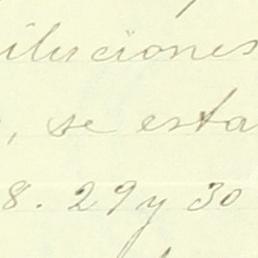 iluciones
, se esta
8. 29 y 30